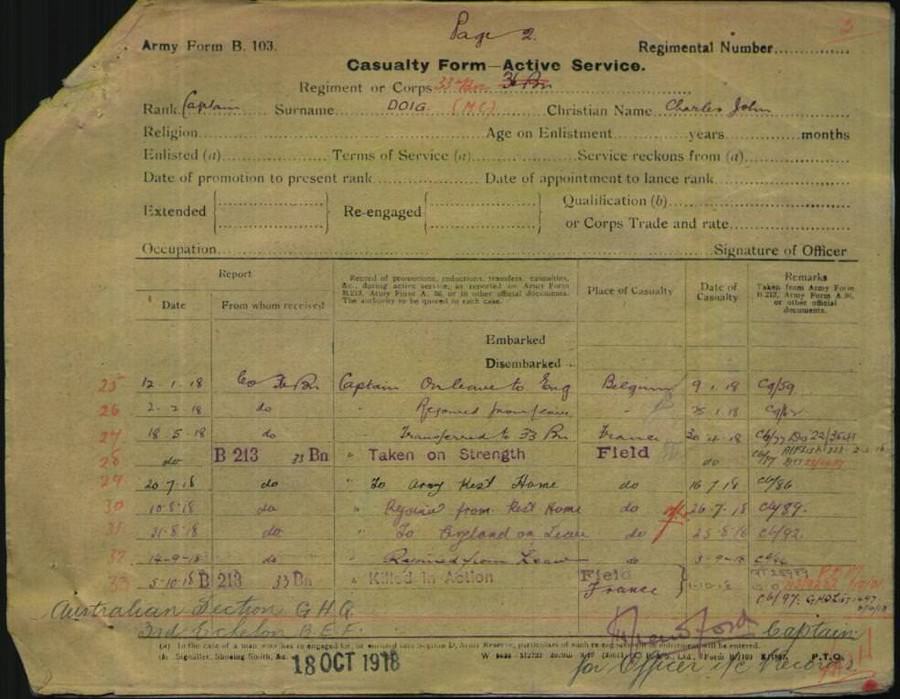 Page 2.
3
Army Form B. 103.
Regimental Number
Casualty Form—Active Service.
Regiment or Corps 33 Bn 36 Bn
Rank Captain Surname DOIG (MC) Christian Name Charles John
Religion Age on Enlistment years months
Enlisted (a) Terms of Service (a) Service reckons from (a)
Date of promotion to present rank Date of appointment to lance rank
Extended Re-engaged Qualification (b)
or Corps Trade and rate
Occupation Signature of Officer
Report
Date From whom received
Record of promotions, reductions, transfers, casualties, &c., during active service, as reported on Army Form B.213, Army Form A. 36, or in other official documents. The authority to be quoted in each case.
Place of Casualty
Date of Casualty
Remarks
Taken from Army Form B.213, Army Form A.36, or other official documents.
Embarked
Disembarked
25 12.1.18 Co 36 Bn Captain On leave to Eng Belgium 9.1.18 C9/59
26 2.2.18 do " Rejoined from leave " 25.1.18
27 18.5.18 do " Transferred to 33 Bn France 30.4.18
28 do B 213 33 Bn " Taken on Strength Field do
29 20.7.18 do " To Army Rest Home do 16.7.18 C6/86
30 10.8.18 do " Rejoined from Rest Home do 26.7.18 C6/89.
31 31.8.18 do " To England on Leave do 25.8.18 C6/92
32 14-9-18 do " Rejoined from Leave
33 5-10-18 B 213 33 Bn " Killed in Action Field France 1-10-18 C6/97.
Australian Section G.H.Q.
3rd Echelon B.E.F.
Captain
P.T.O.
18 OCT 1918
for Officer i/c Records